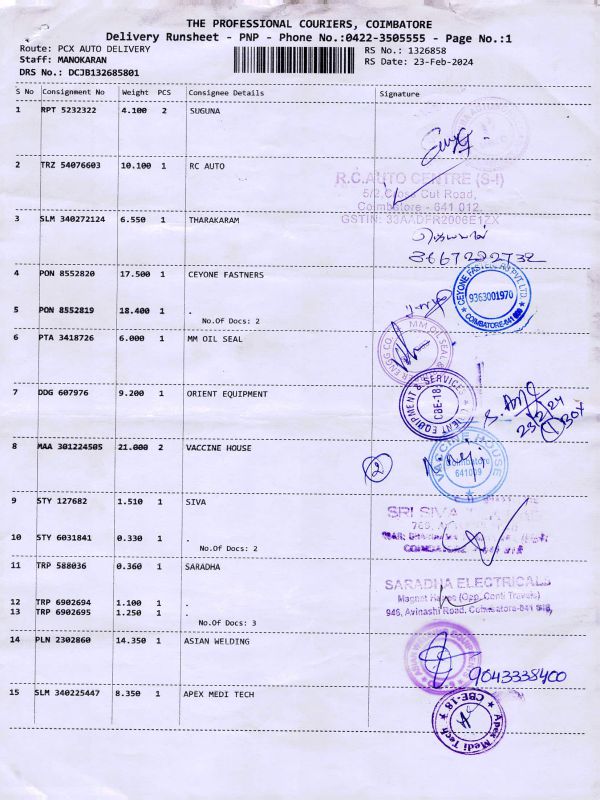 THE PROFESSIONAL COURIERS, COIMBATORE
Delivery Runsheet - PNP - Phone No.:0422-3505555 - Page No.:1
Route: PCX AUTO DELIVERY
RS No.: 1326858
Staff: MANOKARAN
RS Date: 23-Feb-2024
DRS No.: DCJB132685801
S No Consignment No Weight PCS Consignee Details Signature
1 RPT 5232322 4.100 2 SUGUNA
2 TRZ 54076603 10.100 1 RC AUTO
R.C.AUTO CENTRE (S-I)
5/2, Cross Cut Road,
Coimbatore - 641 012.
GSTIN: 33AADFR2006E1ZX
3 SLM 340272124 6.550 1 THARAKARAM
3667292732
4 PON 8552820 17.500 1 CEYONE FASTNERS
CEYONE FASTENERS PVT. LTD.
9363001970
COIMBATORE-641
5 PON 8552819 18.400 1 .
No.Of Docs: 2
6 PTA 3418726 6.000 1 MM OIL SEAL
MM OIL SEAL
7 DDG 607976 9.200 1 ORIENT EQUIPMENT
ORIENT EQUIPMENT & SERVICE
CBE-18
23/2/24
1 BOX
8 MAA 301224505 21.000 2 VACCINE HOUSE
2
VACCINE HOUSE
Coimbatore
641009
9 STY 127682 1.510 1 SIVA
SRI SIVA
10 STY 6031841 0.330 1 .
No.Of Docs: 2
COIMBATORE
11 TRP 588036 0.360 1 SARADHA
SARADHA ELECTRICALS
Magnet Hayes (Opp. Conti Travels)
946, Avinashi Road, Coimbatore-641 018.
12 TRP 6902694 1.100 1 .
13 TRP 6902695 1.250 1 .
No.Of Docs: 3
14 PLN 2302860 14.350 1 ASIAN WELDING
9043338400
15 SLM 340225447 8.350 1 APEX MEDI TECH
Apex Medi Tech
CBE-18